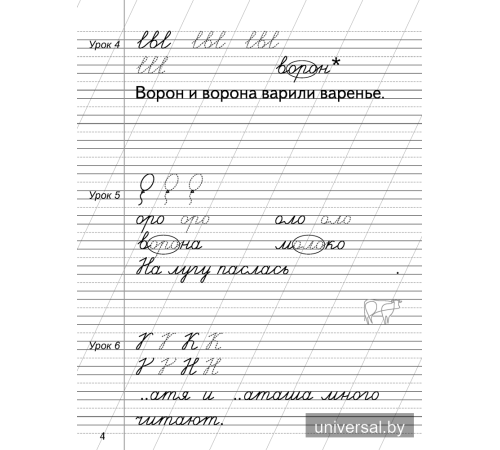 Урок 4 lвl lвl lвl
lll ворон*
Ворон и ворона варили варенье.
Урок 5
оро оро оло оло
ворона молоко
На лугу паслась .
Урок 6 К К
Н Н
..атя и ..аташа много
читают.
4
universal.by